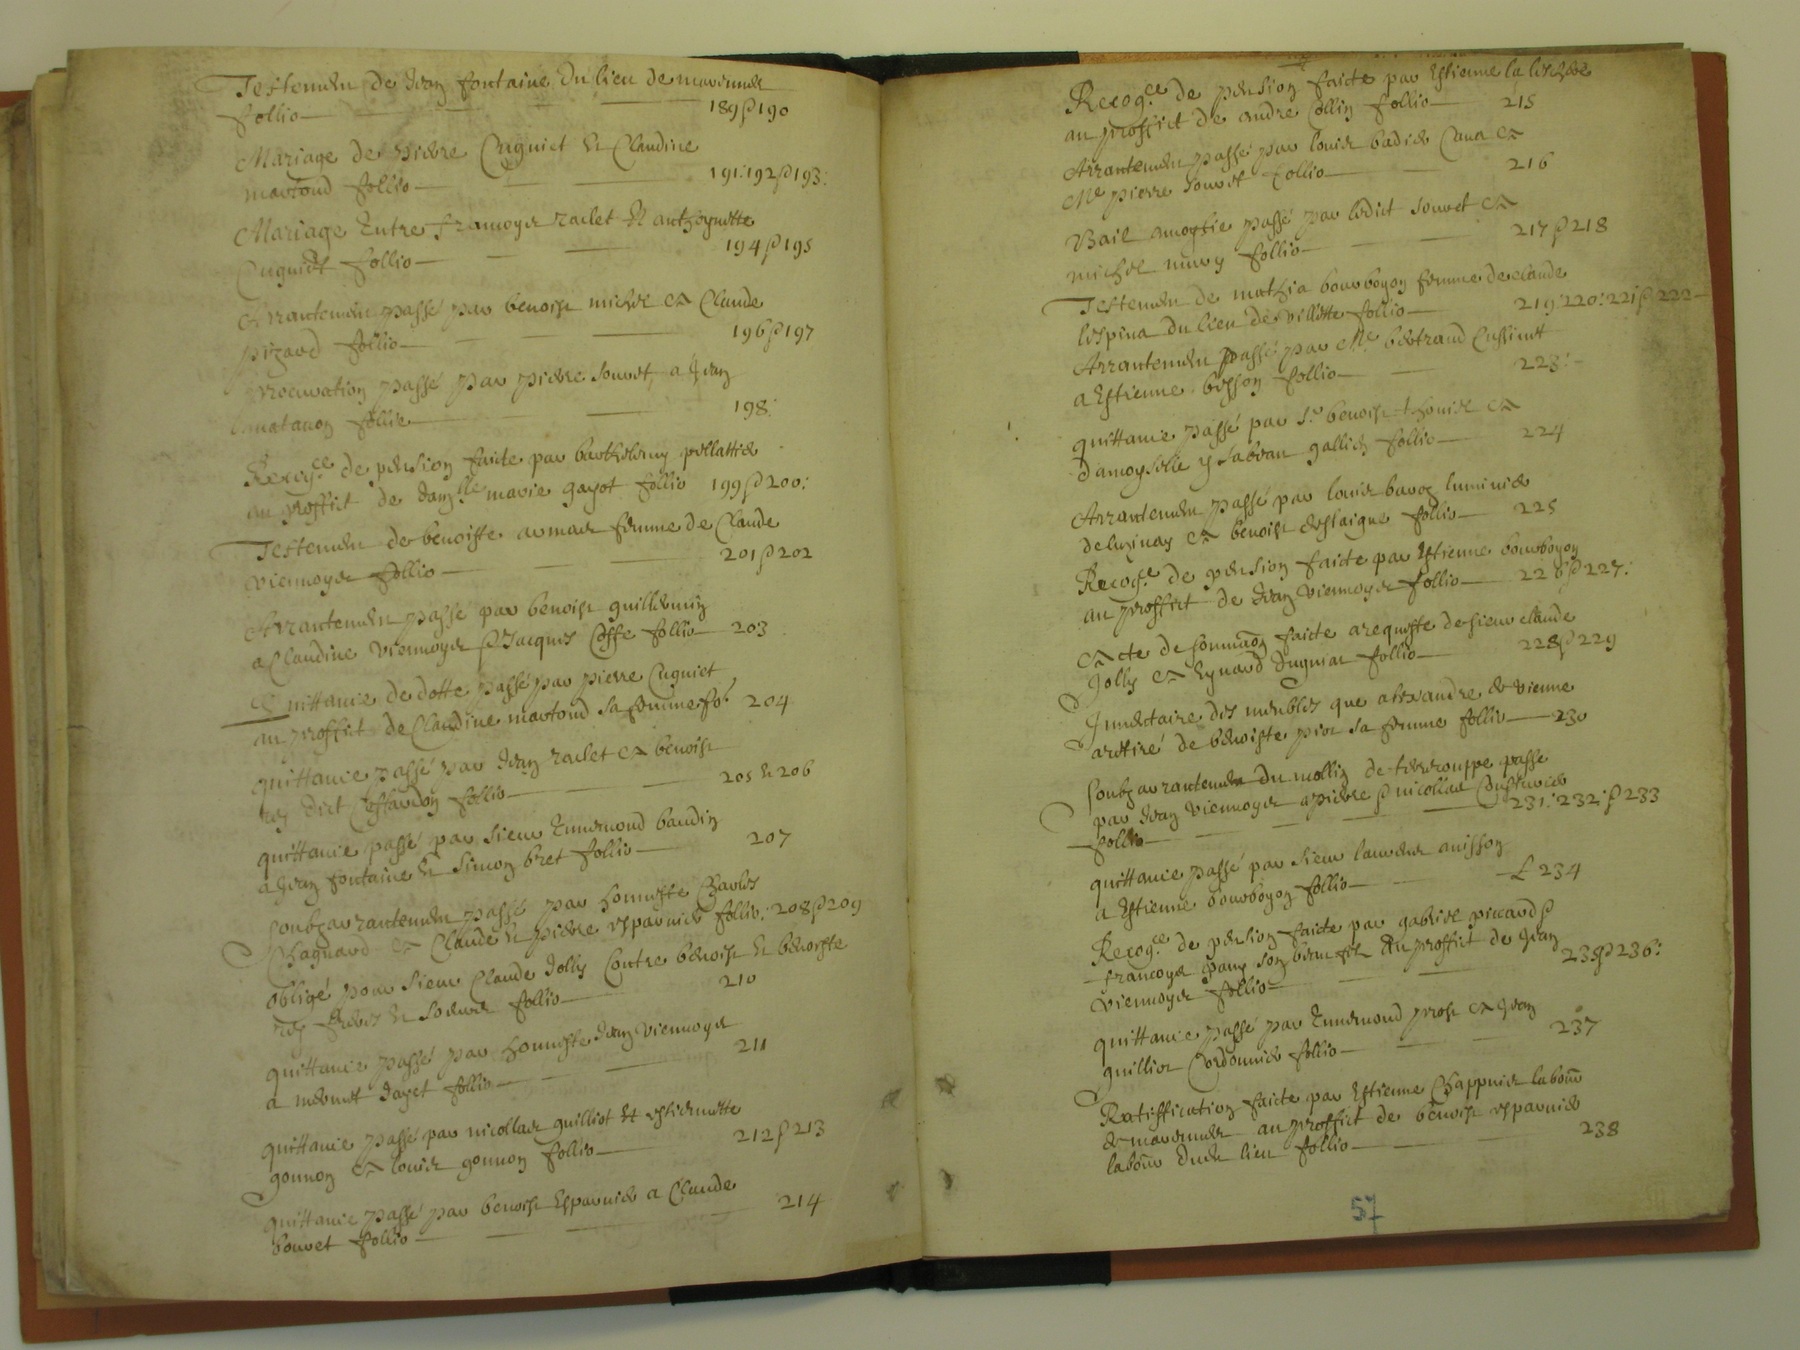 Testement de Jean fontaine du lieu de marennes
follio 189 & 190
Mariage de pierre Cuguiet et Claudine
martoud follio 191: 192 & 193:
Mariage Entre francoys raclet et anthoynette
Cuguiet follio 194 & 195
Arrantement passé par benoist michel et Claude
pizard follio 196 & 197
procuration passé par pierre Jouvet, a Jean
follio 198:
Recog.ce de pension faicte par barthelemy pellattier
au proffict de dam.lle marie gayot follio 199 & 200:
Testement de benoiste armade femme de Claude
viennoys follio 201 & 202
Arrantement passé par benoist guillermin
a Claudine viennoys & Jacques follio 203
Quittance de dotte passé par pierre Cuguiet
au proffict de Claudine martoud sa femme fo. 204
quittance passé par Jean raclet et benoist
rey dict follio 205 et 206
quittance passé par sieur Ennemond baudin
a Jean fontaine et simon bret follio 207
soubzarrantement passé par honneste Charles
Chagnard et Claude et pierre esparnier follio: 208 & 209
obligé pour sieur Claude Jolly Contre benoist et benoiste
rey freres et soeurs follio 210
quittance passé par honneste Jean viennoys
a mermet dayet follio 211
quittance passé par nicollas guilliot et estiennette
gonnon et louis gonnon follio 212 & 213
quittance passé par benoist Esparnier a Claude
bouvet follio 214
Recog.ce de pension faicte par Estienne
au proffict de andre Collin follio 215
Arrantement passé par louis badier Cura et
M.e pierre Jouvet follio 216
Bail amoytie passé par ledict Jouvet et
michel follio 217 & 218
Testement de mathia bourboyon femme de claude
lespina du lieu de villette follio 219: 220: 221 & 222
Arrantement passé par M.e bertrand Cussinet
a Estienne besson follio 223:
quittance passé par s.r benoist thouid et
damoyselle ysabeau gallien follio 224
Arrantement passé par louis baroz luminier
de luzinay et benoist follio 225
Recog.ce de pension faicte par Estienne bourboyon
au proffict de Jean viennoys follio 226 & 227:
Acte de sommaon faicte a requeste de sieur claude
Jolly et Eynard follio 228 & 229
Inventaire des meubles que alexandre de vienne
a retiré de benoiste pion sa femme follio 230
soubzarrantement du mollin de passe
par Jean viennoys a pierre & nicollas
follio 231: 232: & 233
quittance passé par sieur laurens anisson
a Estienne bourboyon follio 234
Recog.ce de pension faicte par gabriel piccard &
francoys son beau filz Au proffict de Jean
viennoys follio 235 & 236:
quittance passé par Ennemond prost et Jean
guilliot Cordonnier follio 237
Ratiffication faicte par Estienne Chappuis labour
de marennes au proffict de benoist esparnier
labour dud lieu follio 238
57